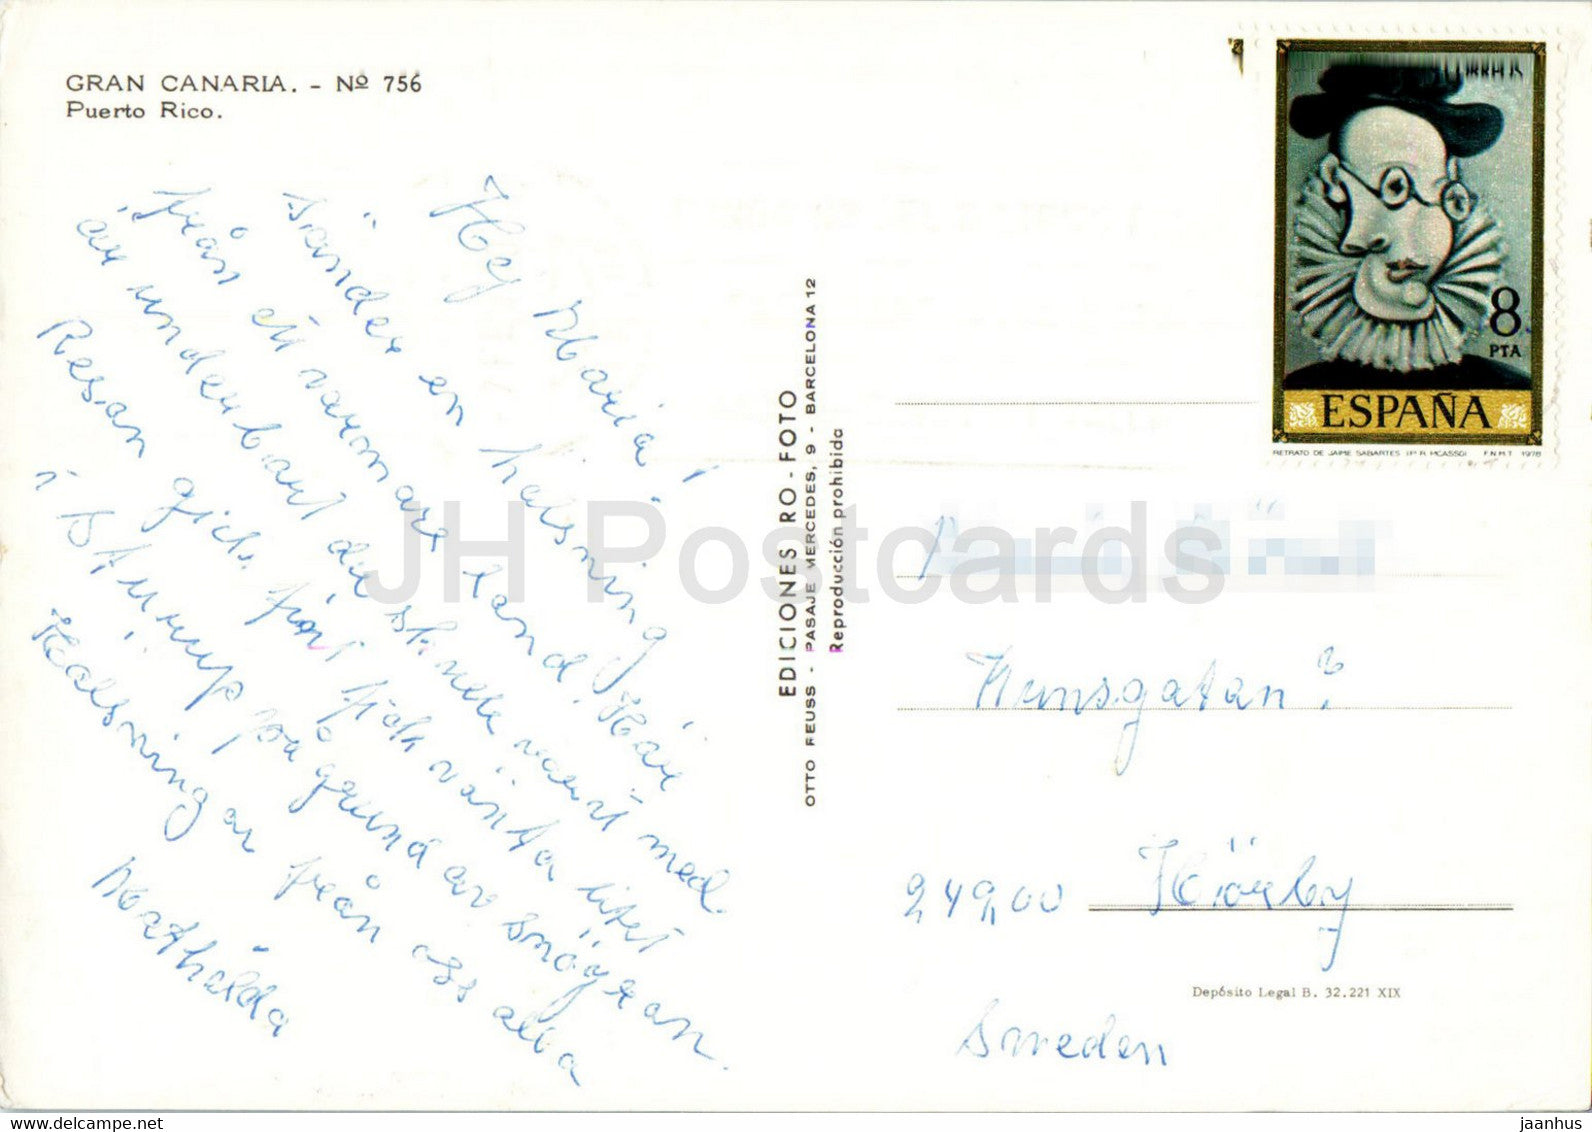 GRAN CANARIA. - Nº 756
Puerto Rico.
Hej Maria!
Sänder en hälsning
från ett varmare land. Här
är underbart det skulle varit med.
Resan gick fort fick vänta litet
i Sturup på grund av snögean.
Hälsningar från oss alla
Mathilda
EDICIONES RO - FOTO
OTTO REUSS - PASAJE MERCEDES, 9 - BARCELONA 12
Reproducción prohibida
8
PTA
ESPAÑA
RETRATO DE JAIME SABARTES (P. R. PICASSO) F.N.M.T. 1978
Munsgatan 2
249,00 Hörby
Sweden
Depósito Legal B. 32.221 XIX
JH Postcards
jaanhus
www.delcampe.net